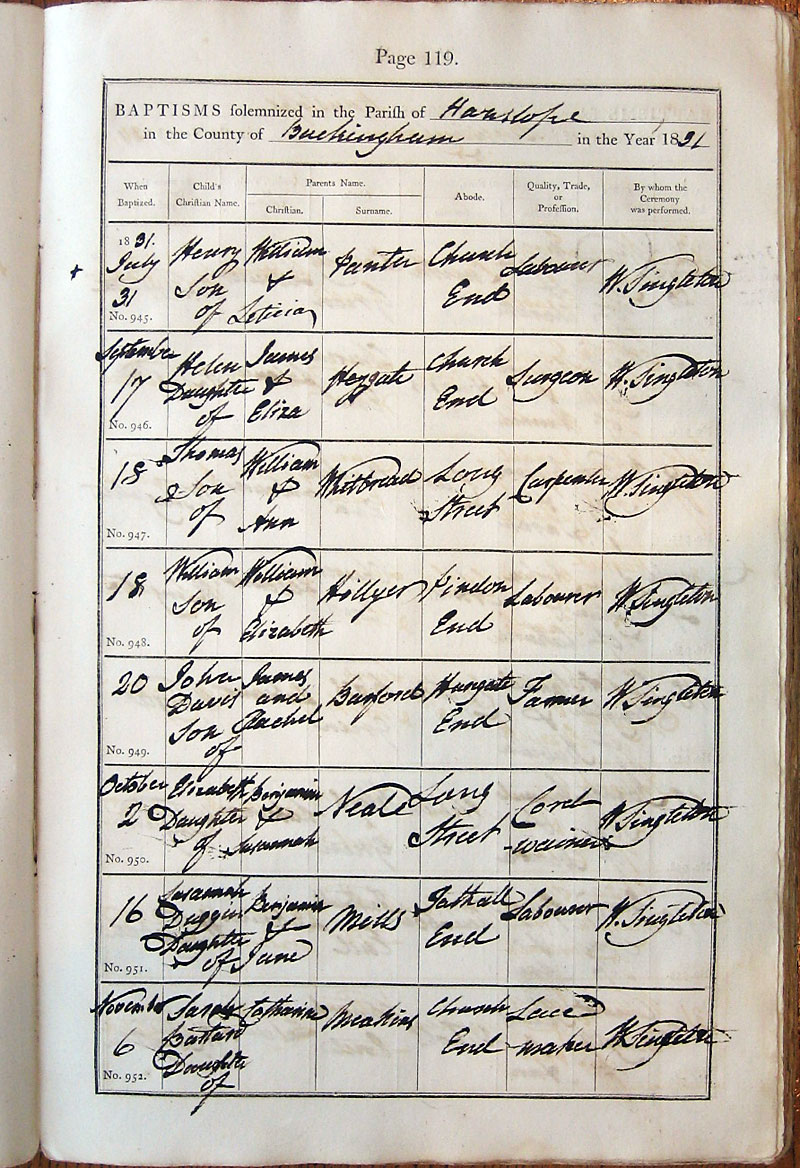 Page 119.
BAPTISMS solemnized in the Parish of Hanslope
in the County of Buckingham in the Year 1831
When Baptized. Child's Christian Name. Parents Name. Abode. Quality, Trade, or Profession. By whom the Ceremony was performed.
Christian. Surname.
1831. July 31 No. 945. Henry Son of William & Leticia Panter Church End Labourer W. Singleton
September 17 No. 946. Helen Daughter of James & Eliza Heygate Church End Surgeon W. Singleton
18 No. 947. Thomas Son of William & Ann Whitbread Long Street Carpenter W. Singleton
18 No. 948. William Son of William & Elizabeth Hillyer Pindon End Labourer W Singleton
20 No. 949. John Davis Son of James and Rachel Banford Hungate End Farmer W Singleton
October 2 No. 950. Elizabeth Daughter of Benjamin & Susannah Neale Long Street Cord-wainer W Singleton
16 No. 951. Susannah Duggins Daughter of Benjamin & Jane Mills Tathall End Labourer W. Singleton
November 6 No. 952. Sarah Bastard Daughter of Catharine Meakins Church End Lace maker W Singleton